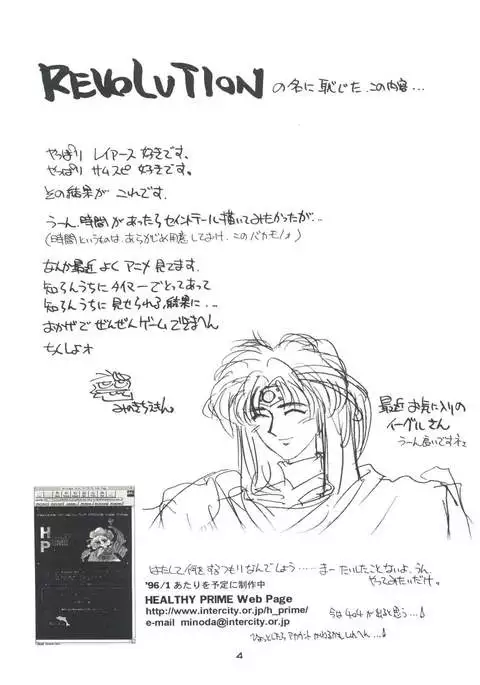 REVOLUTION の名に恥じた、この内容…
やっぱり レイアース 好きです。
やっぱり サムスピ 好きです。
その結果が これです。
うーん、時間があったらセイントテール描いてみたかったが…
(時間というものは、あらかじめ用意しておけ、このバカモノ♪)
なんか最近よくアニメ見てます。
知らんうちにタイマーでとってあって
知らんうちに見せられる、結果に…
おかげでぜんぜんゲームできまへん
ちくしょォ
最近お気に入りの
イーグルさん
うーん良いですネェ
はたして何をするつもりなんでしょう……まーたいしたことないよ、うん。
やってみたいだけ。
'96/1 あたりを予定に制作中
HEALTHY PRIME Web Page
http://www.intercity.or.jp/h_prime/
e-mail minoda@intercity.or.jp
今は404が出ると思う…♪
ひょっとしたらアカウントかわるかもしれへん…♪
H
P
4